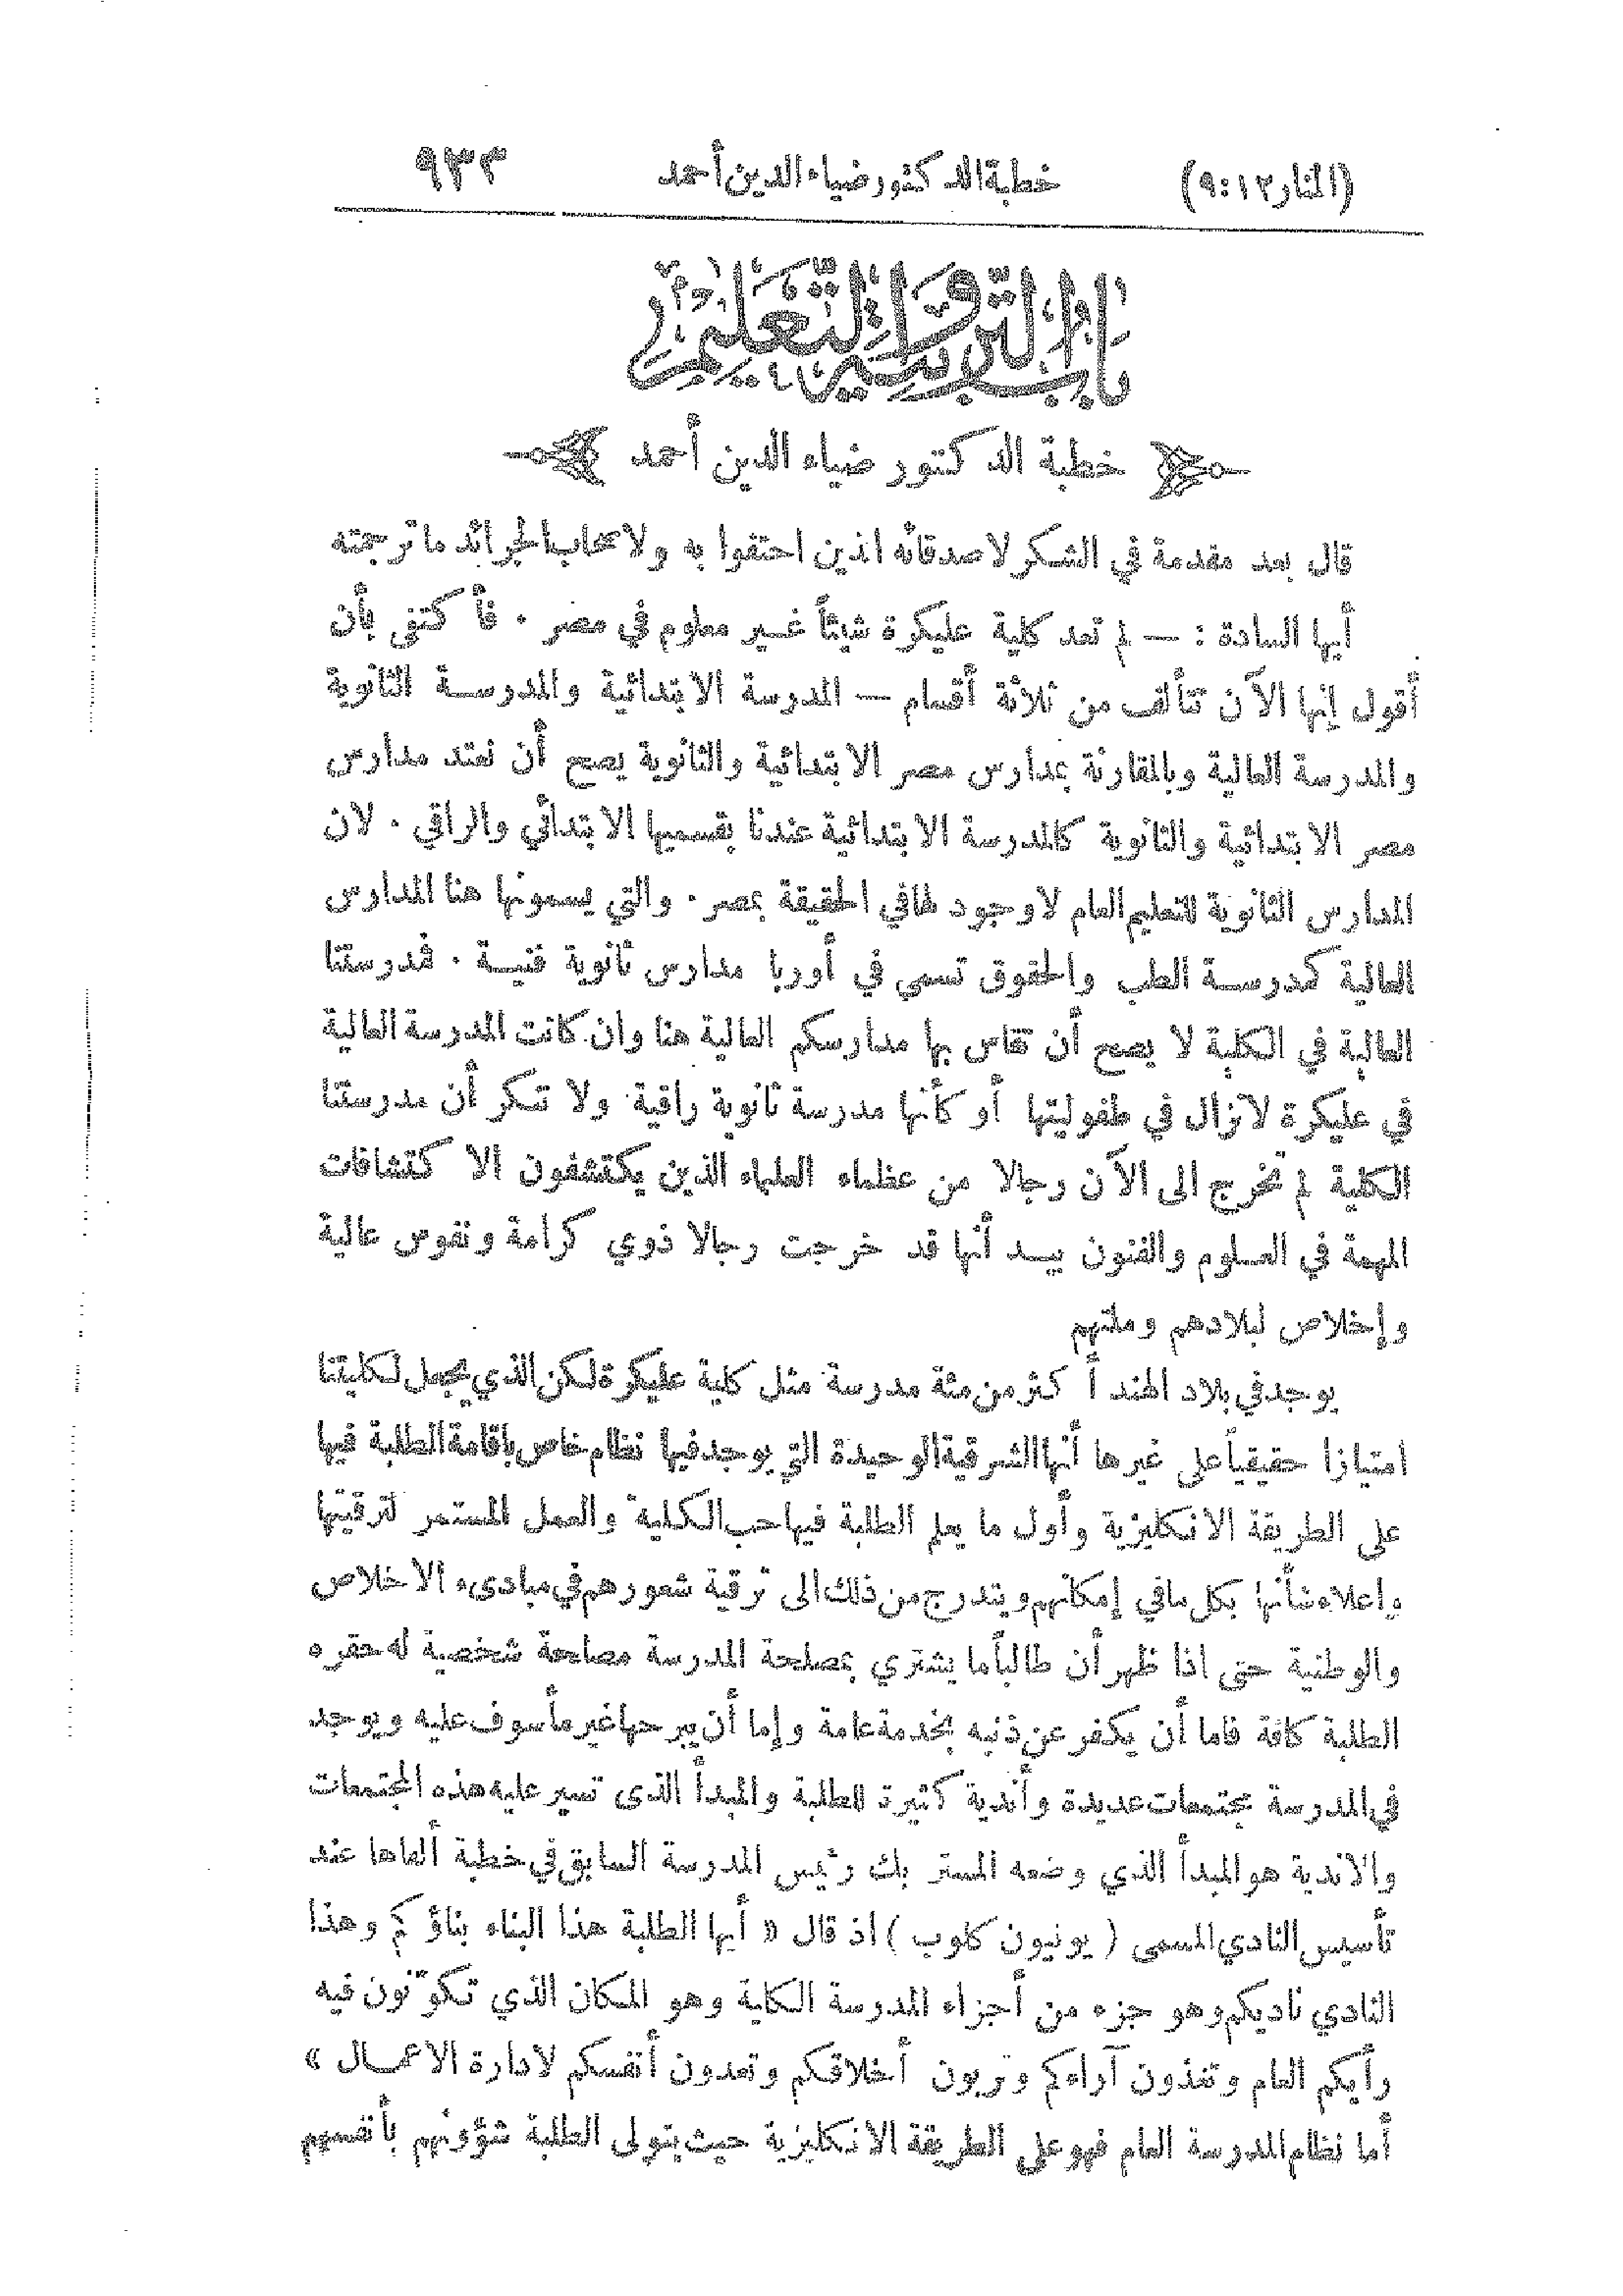 (المنار ١٢:٩) خطبة الدكتور ضياء الدين أحمد ٩٣٣
باب التربية والتعليم
خطبة الدكتور ضياء الدين أحمد
قال بعد مقدمة في الشكر لاصدقائه الذين احتفوا به ولاصحاب الجرائد ما ترجمته
أيها السادة : — لم تعد كلية عليكرة شيئاً غير معلوم في مصر . فأكتفي بأن
أقول إنها الآن تتألف من ثلاثة أقسام — المدرسة الابتدائية والمدرسة الثانوية
والمدرسة العالية وبالمقارنة بمدارس مصر الابتدائية والثانوية يصح أن نعتد مدارس
مصر الابتدائية والثانوية كالمدرسة الابتدائية عندنا بقسميها الابتدائي والراقي . لان
المدارس الثانوية للتعليم العام لاوجود لها في الحقيقة بمصر . والتي يسمونها هنا المدارس
العالية كمدرسة الطب والحقوق تسمى في أوربا مدارس ثانوية فنية . فمدرستنا
العالية في الكلية لا يصح أن تقاس بها مدارسكم العالية هنا وان كانت المدرسة العالية
في عليكرة لاتزال في طفوليتها أو كأنها مدرسة ثانوية راقية ولا تنكر أن مدرستنا
الكلية لم تخرج الى الآن رجالا من عظماء العلماء الذين يكتشفون الاكتشافات
المهمة في العلوم والفنون بيد أنها قد خرجت رجالا ذوي كرامة ونفوس عالية
وإخلاص لبلادهم وملتهم
يوجد في بلاد الهند أكثر من مئة مدرسة مثل كلية عليكرة لكن الذي يجعل لكليتنا
امتيازا حقيقياً على غيرها أنها الشرقية الوحيدة التي يوجد فيها نظام خاص باقامة الطلبة فيها
على الطريقة الانكليزية وأول ما يعلم الطلبة فيها حب الكلية والعمل المستمر لترقيتها
وإعلاء شأنها بكل ما في إمكانهم ويتدرج من ذلك الى ترقية شعورهم في مبادىء الاخلاص
والوطنية حتى اذا ظهر أن طالباً ما يشتري بمصلحة المدرسة مصلحة شخصية له حقره
الطلبة كافة فاما أن يكفر عن ذنبه بخدمة عامة وإما أن يبرحها غير مأسوف عليه ويوجد
في المدرسة مجتمعات عديدة وأندية كثيرة للطلبة والمبدأ الذى تسير عليه هذه المجتمعات
والاندية هو المبدأ الذي وضعه المستر بك رئيس المدرسة السابق في خطبة ألقاها عند
تأسيس النادي المسمى ( يونيون كلوب ) اذ قال « أيها الطلبة هذا البناء بناؤكم وهذا
النادي ناديكم وهو جزء من أجزاء المدرسة الكلية وهو المكان الذي تكوّنون فيه
رأيكم العام وتغذون آراءكم وتربون أخلاقكم وتعدون أنفسكم لادارة الاعمال »
أما نظام المدرسة العام فهو على الطريقة الانكليزية حيث يتولى الطلبة شؤونهم بأنفسهم